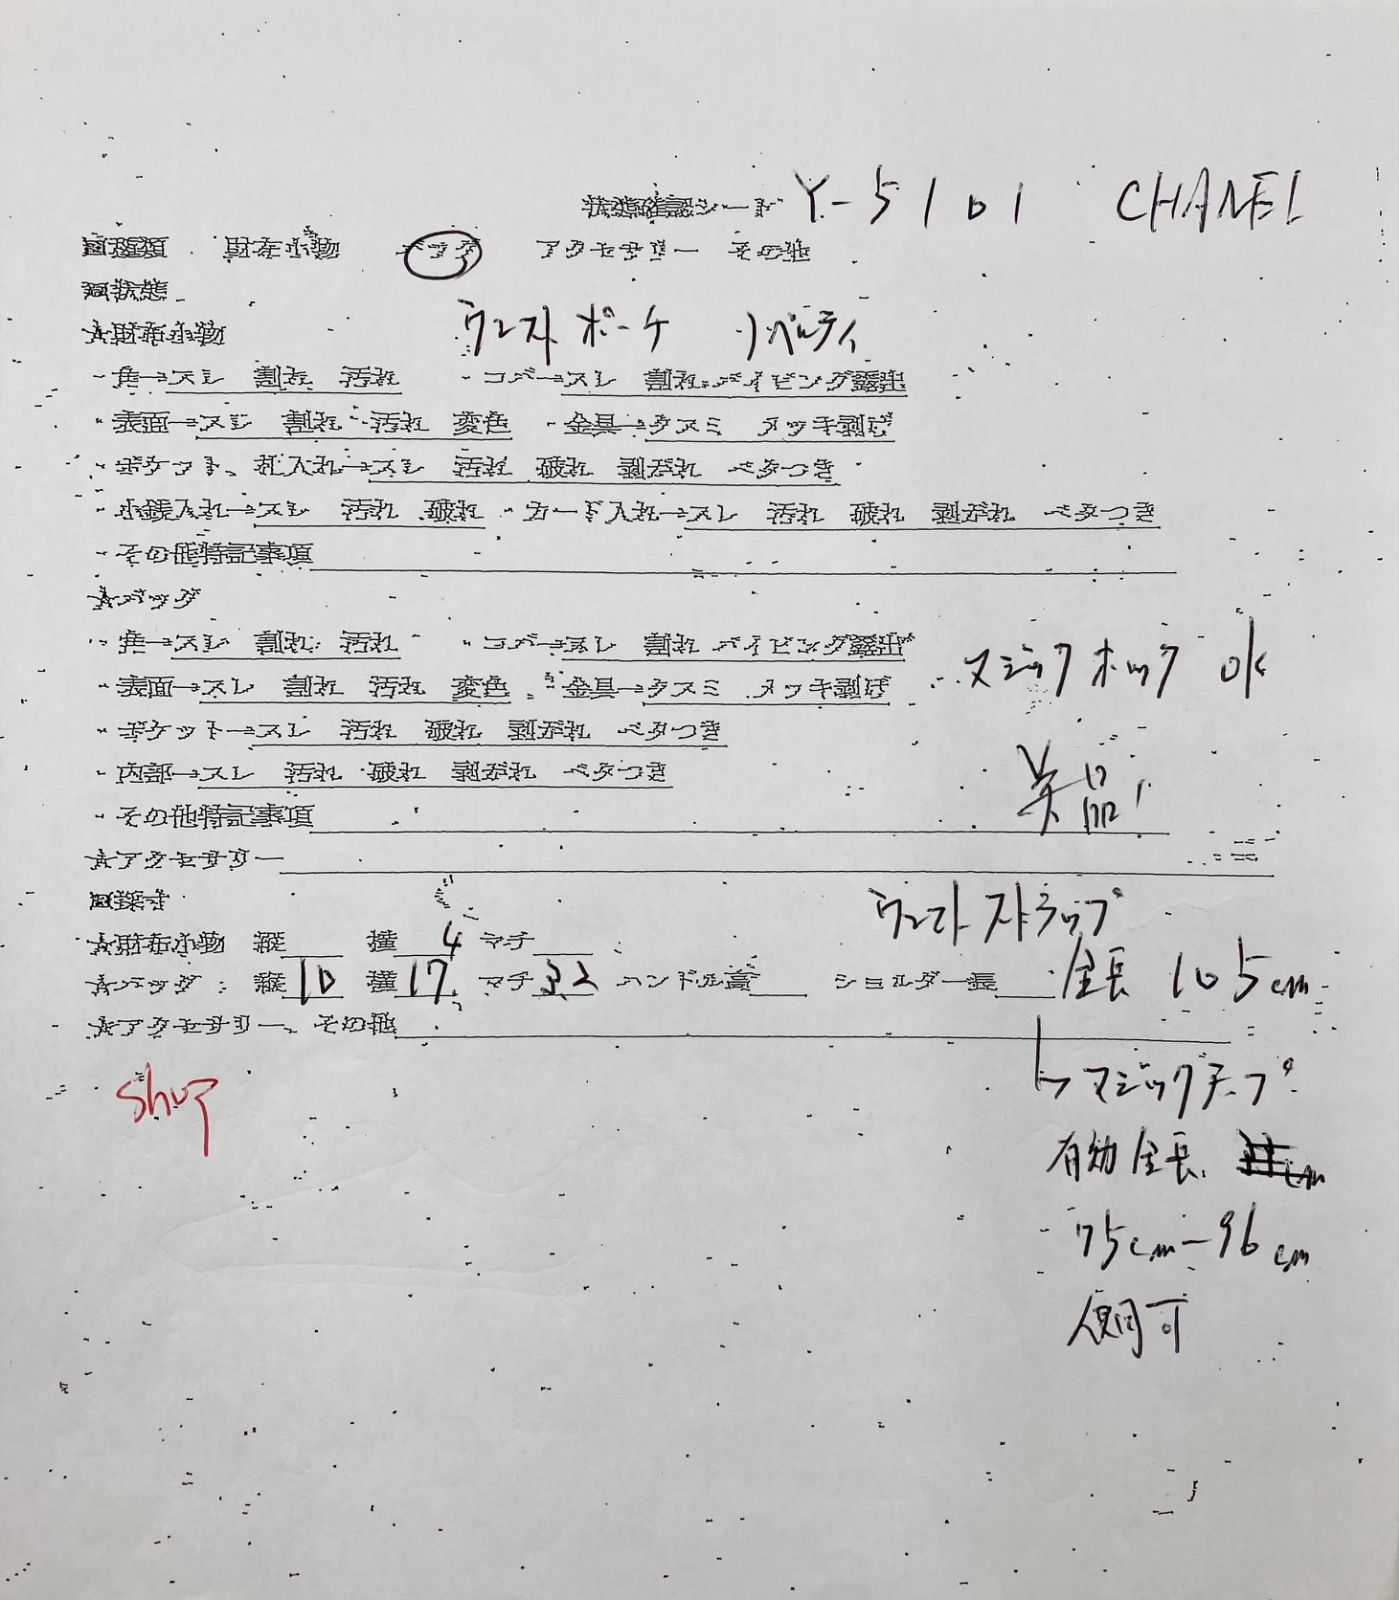 状態確認シート Y-5101 CHANEL
□種類 財布小物 バッグ アクセサリー その他
□状態
ウエストポーチ ノベルティ
☆財布小物
・角→スレ 割れ 汚れ ・コバ→スレ 割れ パイピング露出
・表面→スレ 割れ 汚れ 変色 ・金具→クスミ メッキ剥げ
・ポケット、札入れ→スレ 汚れ 破れ 剥がれ ベタつき
・小銭入れ→スレ 汚れ 破れ ・カード入れ→スレ 汚れ 破れ 剥がれ ベタつき
・その他特記事項
☆バッグ
・角→スレ 割れ 汚れ ・コバ→スレ 割れ パイピング露出
マジックホック ok
・表面→スレ 割れ 汚れ 変色 ・金具→クスミ メッキ剥げ
・ポケット→スレ 汚れ 破れ 剥がれ ベタつき
・内部→スレ 汚れ 破れ 剥がれ ベタつき
美品!
・その他特記事項
☆アクセサリー
□採寸
ウエストストラップ
☆財布小物 縦 横 4 マチ
☆バッグ: 縦 10 横 17 マチ ハンドル高 ショルダー長 全長 105cm
☆アクセサリー、その他
↳マジックテープ
shop
有効全長
75cm-96cm
使用可